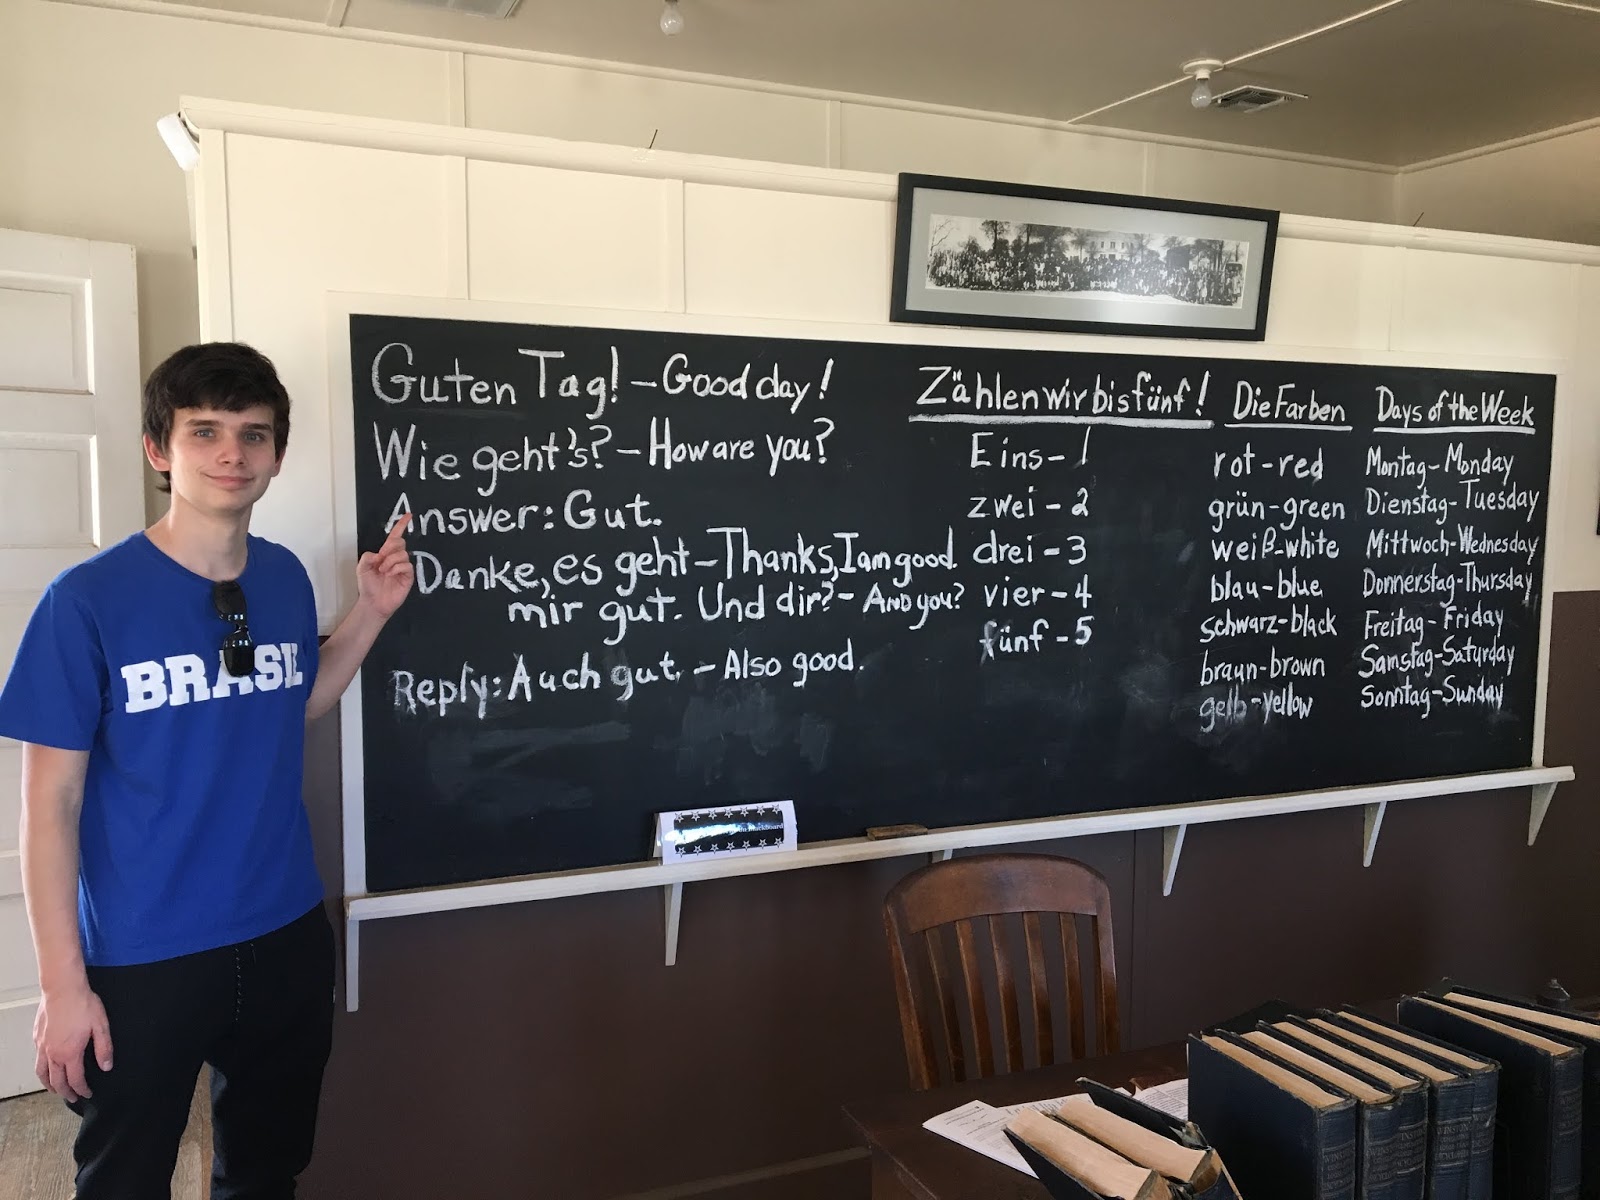 Guten Tag! – Good day!
Wie geht's? – How are you?
Answer: Gut.
Danke, es geht – Thanks, I am good.
mir gut. Und dir? – And you?
Reply: Auch gut. – Also good.
Zählen wir bis fünf!
Eins – 1
zwei – 2
drei – 3
vier – 4
fünf – 5
Die Farben
rot – red
grün – green
weiß – white
blau – blue
schwarz – black
braun – brown
gelb – yellow
Days of the Week
Montag – Monday
Dienstag – Tuesday
Mittwoch – Wednesday
Donnerstag – Thursday
Freitag – Friday
Samstag – Saturday
Sonntag – Sunday
BRASIL